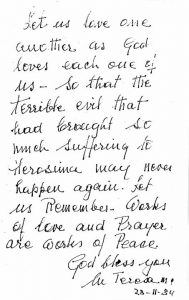 Let us love one
another as God
loves each one of
us - So that the
terrible evil that
had brought so
much suffering to
Herosima may never
happen again. Let
us Remember - Works
of love and Prayer
are works of Peace
God bless you
M Teresa mc
23-11-84